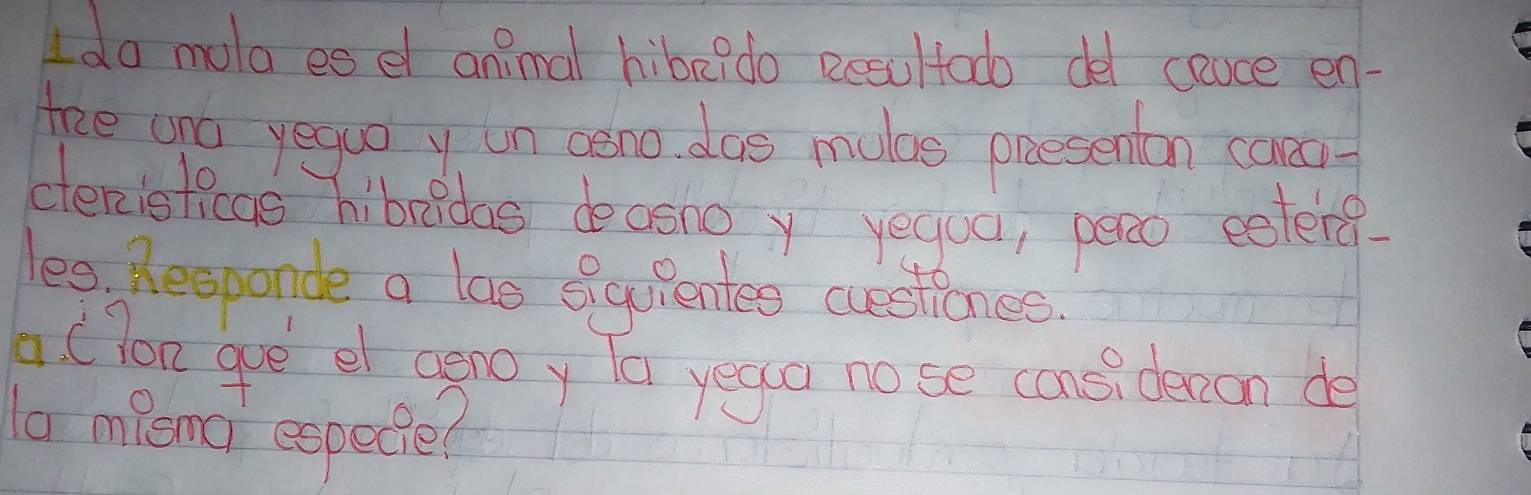 1 La mula es el animal hibrido resultado del cruce en-
tre una yegua y un asno. Las mulas presentan cara-
cteristicas hibridas de asno y yegua, pero esteri-
les. Responde a las siguientes cuestiones.
a. ¿Por qué el asno y la yegua no se consideran de
la misma especie?